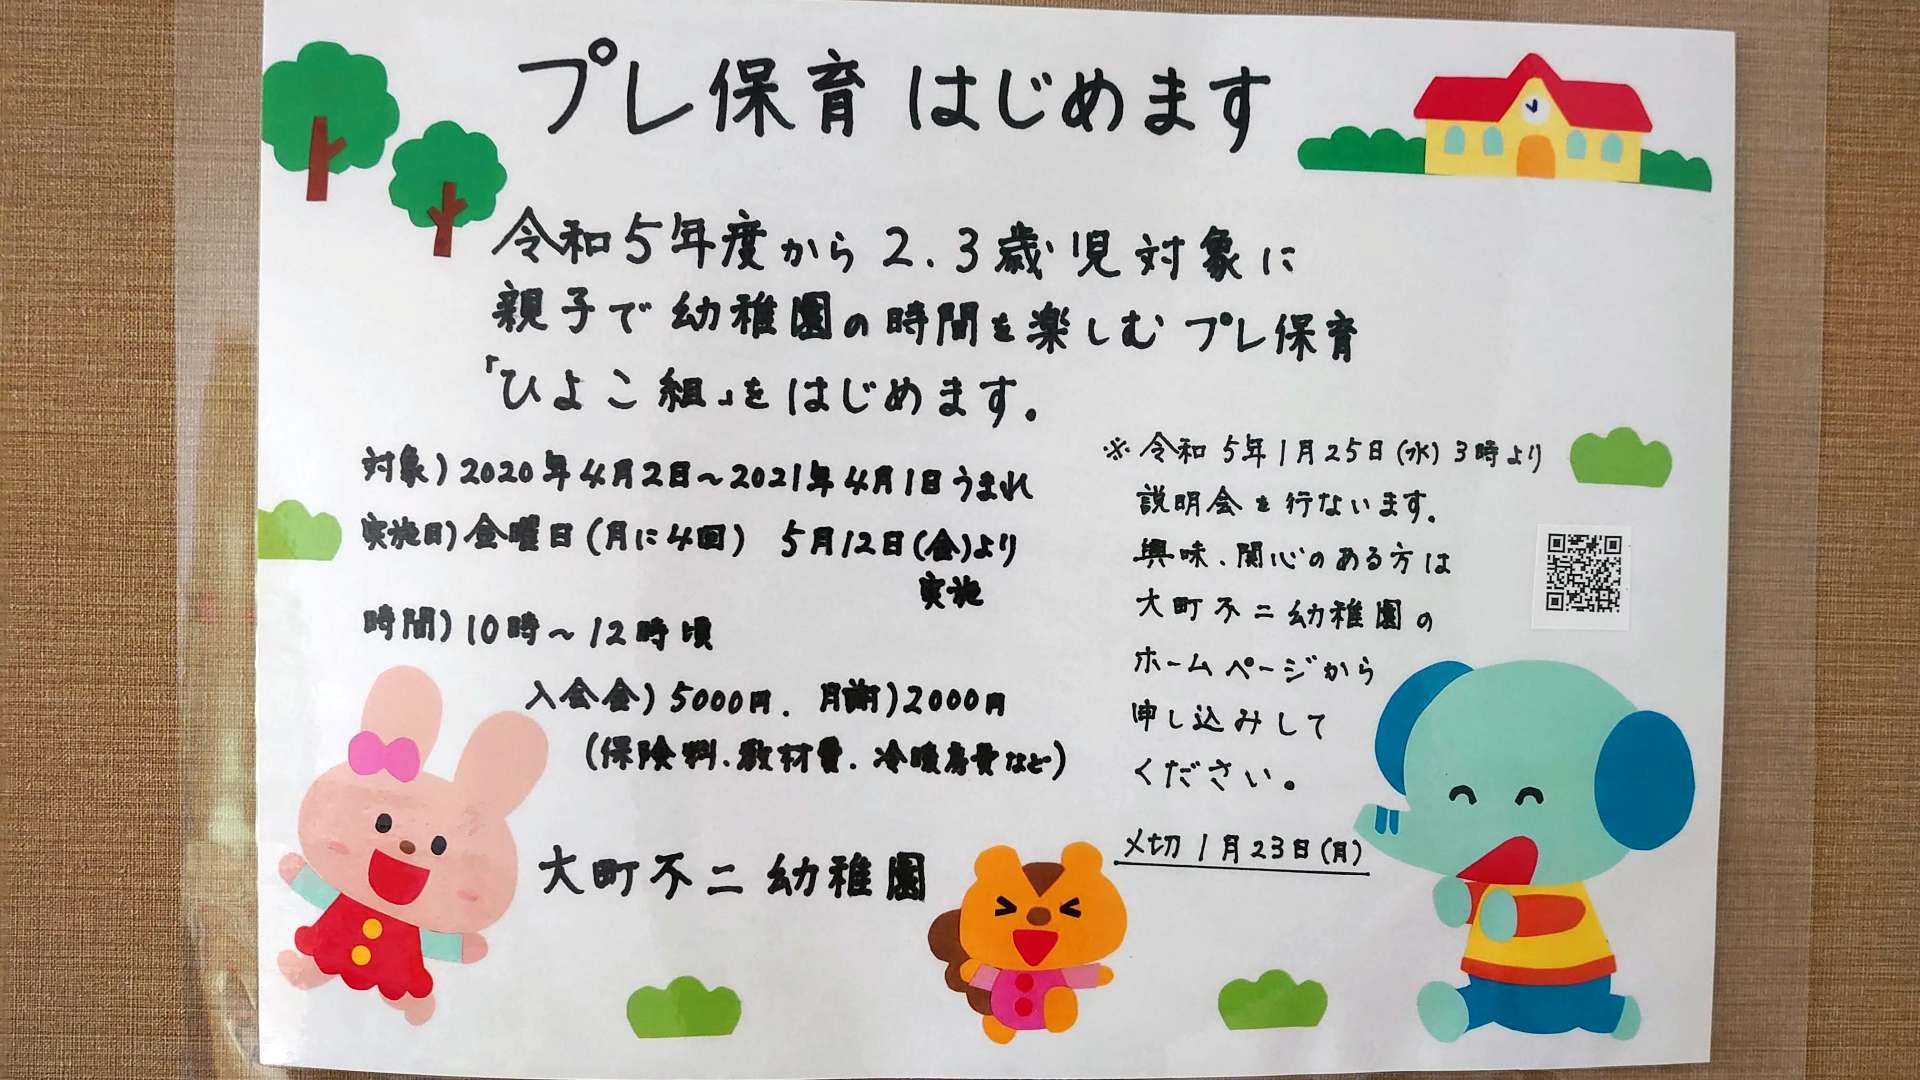 プレ保育 はじめます
令和5年度から 2.3歳児対象に
親子で幼稚園の時間を楽しむ プレ保育
「ひよこ組」をはじめます。
対象) 2020年4月2日～2021年4月1日うまれ
実施日) 金曜日(月に4回) 5月12日(金)より
実施
時間) 10時～12時頃
入会金) 5000円. 月謝) 2000円
(保険料.教材費.冷暖房費など)
大町不二幼稚園
※令和5年1月25日(水) 3時より
説明会を行ないます。
興味.関心のある方は
大町不二幼稚園の
ホームページから
申し込みして
ください。
〆切 1月23日(月)